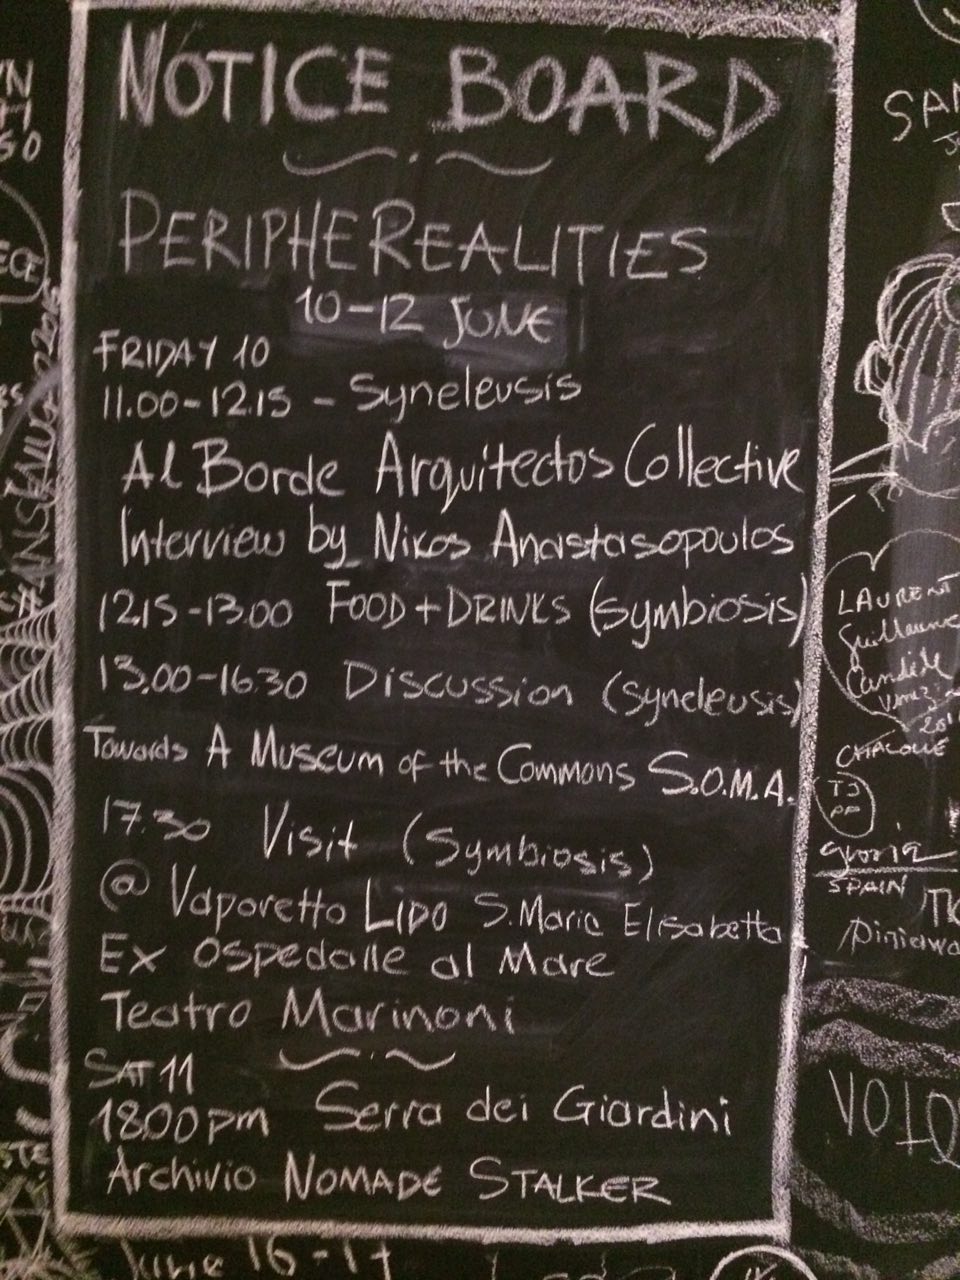 NOTICE BOARD
PERIPHEREALITIES
10-12 JUNE
FRIDAY 10
11.00-12.15 - Syneleusis
Al Borde Arquitectos Collective
Interview by Nikos Anastasopoulos
12.15-13.00 FOOD+DRINKS (symbiosis)
13.00-16.30 Discussion (syneleusis)
Towards A Museum of the Commons S.O.M.A.
17.30 Visit (Symbiosis)
@ Vaporetto LIDO S. Maria Elisabetta
Ex Ospedalle al Mare
Teatro Marinoni
SAT 11
18.00 pm Serra dei Giardini
Archivio NOMADE STALKER
June 16-17
LAURENT
Guillaume
Candide
gloria
SPAIN